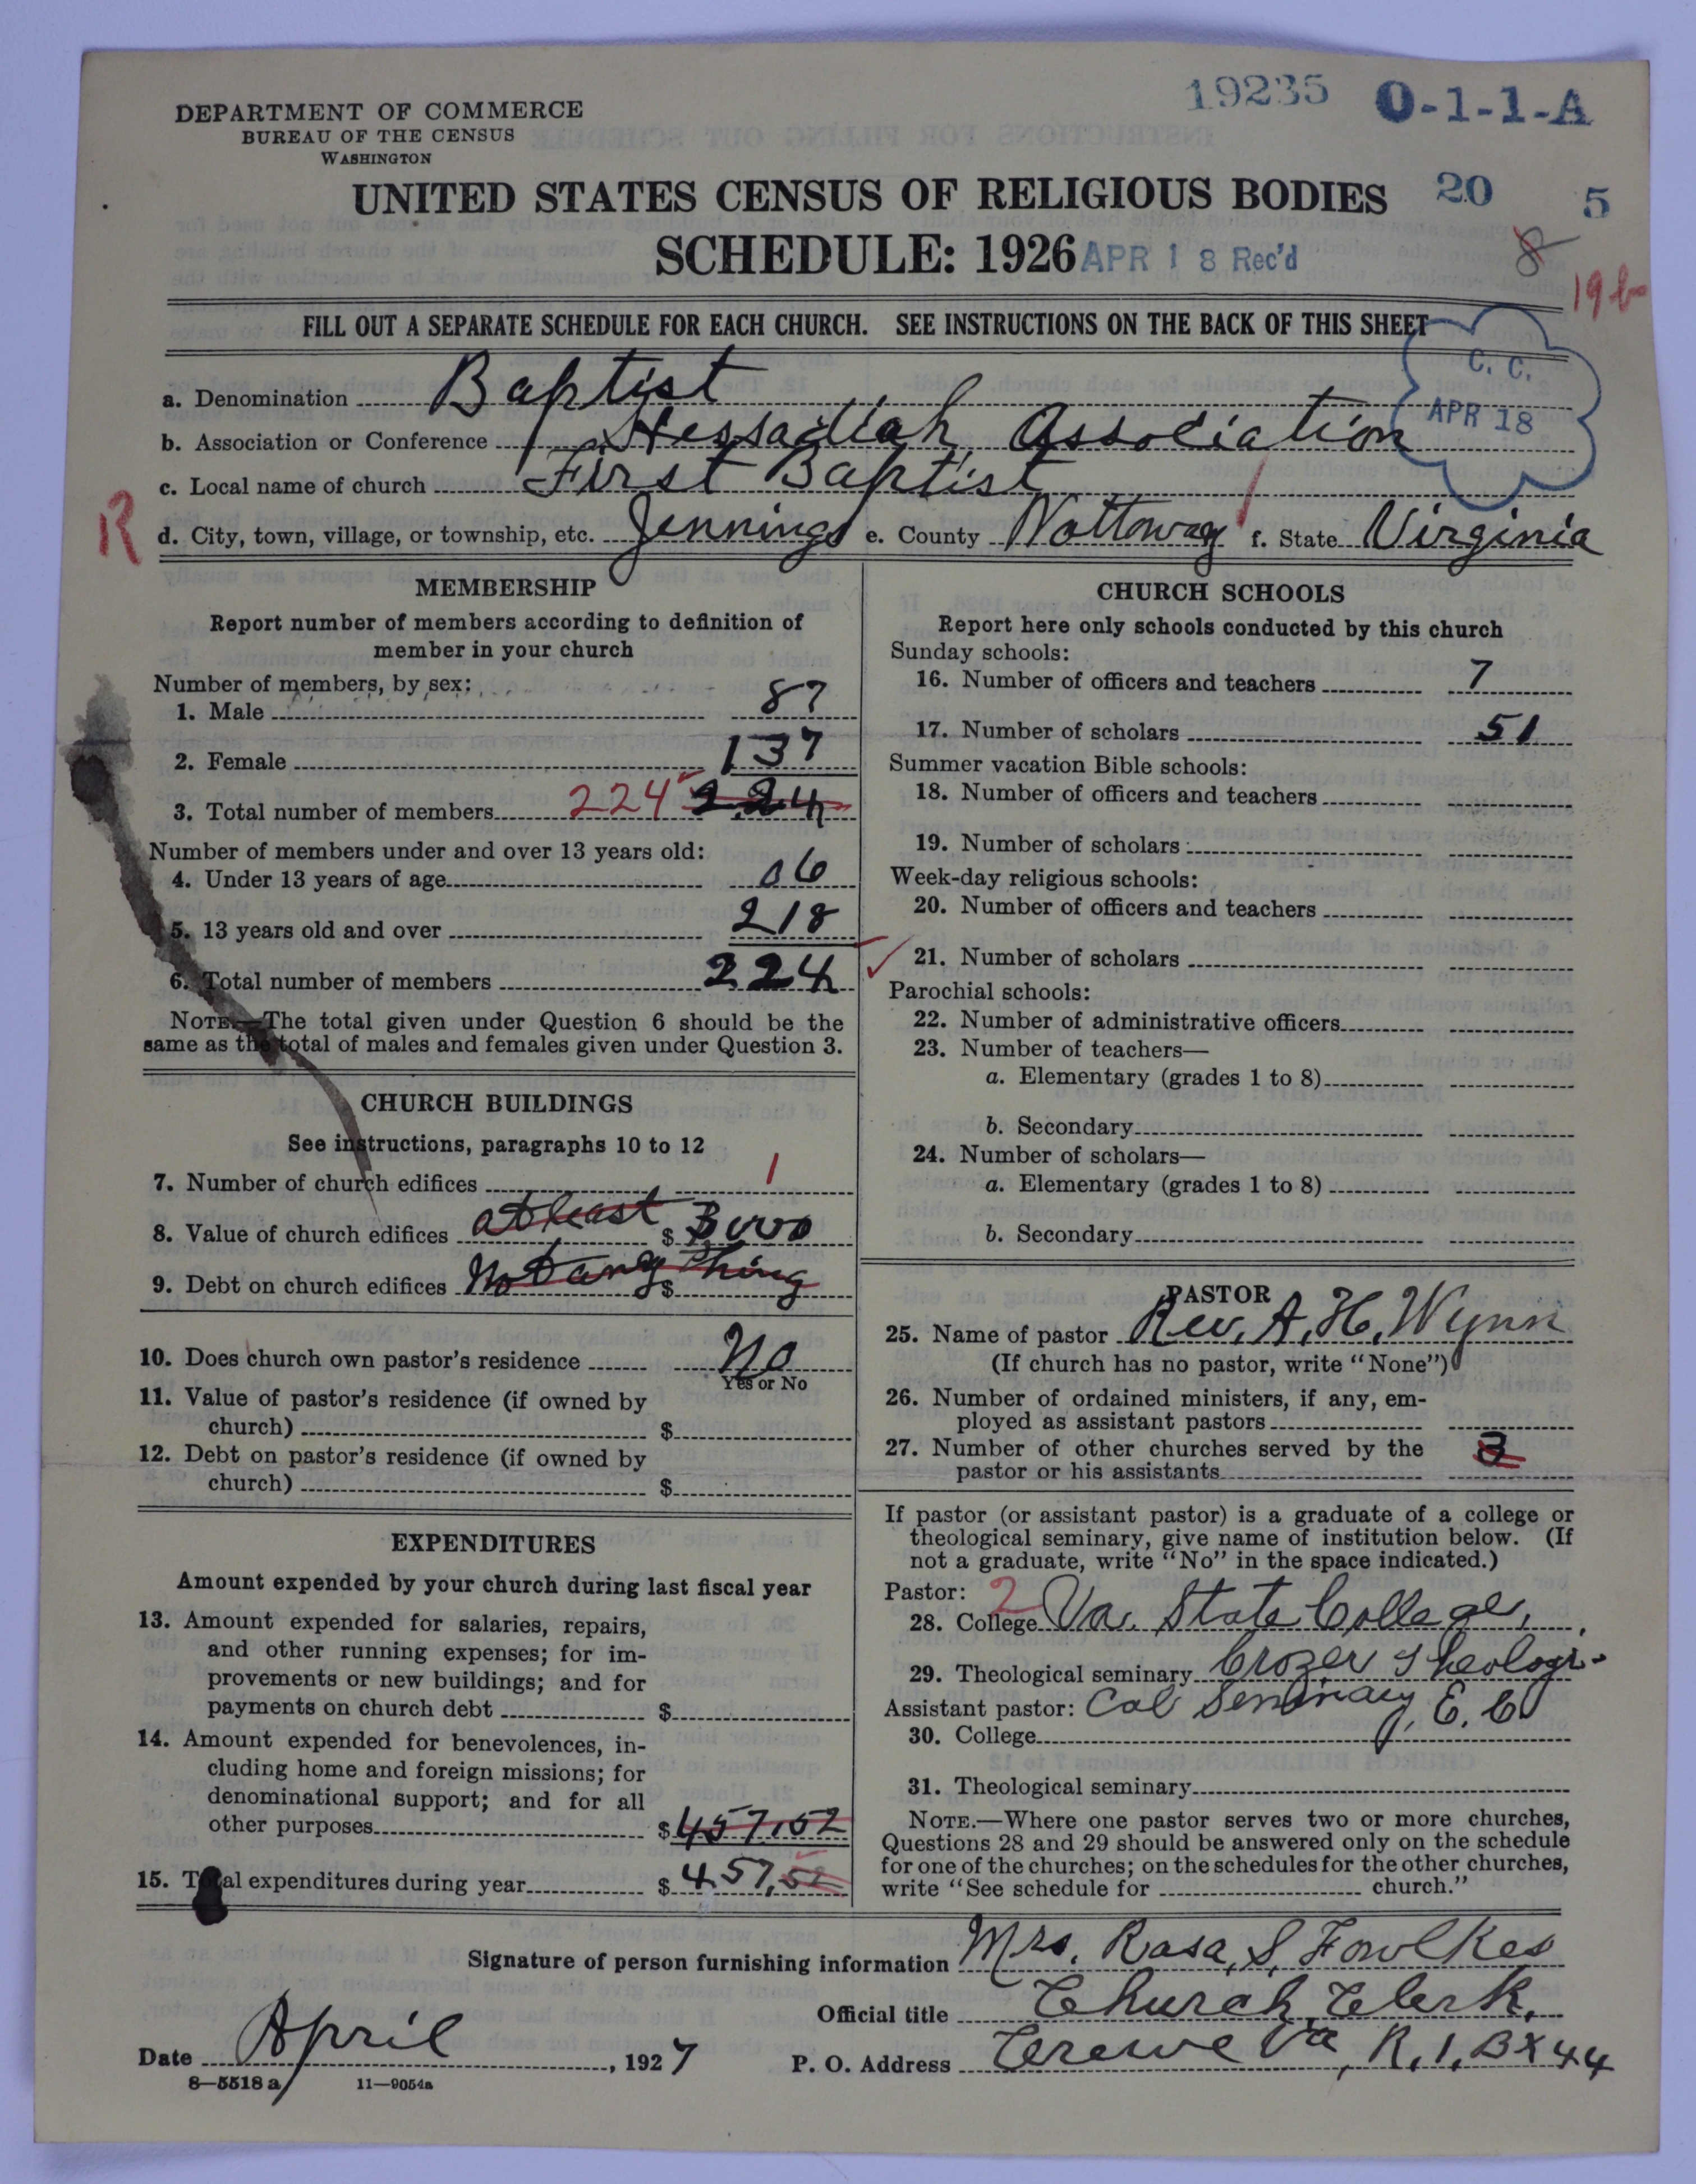 19235 O-1-1-A
DEPARTMENT OF COMMERCE
BUREAU OF THE CENSUS
WASHINGTON
UNITED STATES CENSUS OF RELIGIOUS BODIES 20 5
SCHEDULE: 1926 APR 18 Rec'd 8
19b
FILL OUT A SEPARATE SCHEDULE FOR EACH CHURCH. SEE INSTRUCTIONS ON THE BACK OF THIS SHEET
C. C.
APR 18
a. Denomination Baptist
b. Association or Conference Hessadiah Association
c. Local name of church First Baptist
R d. City, town, village, or township, etc. Jennings e. County Nottoway f. State Virginia
MEMBERSHIP
Report number of members according to definition of
member in your church
Number of members, by sex:
1. Male 87
2. Female 137
3. Total number of members 224 224
Number of members under and over 13 years old:
4. Under 13 years of age 06
5. 13 years old and over 218
6. Total number of members 224
NOTE.—The total given under Question 6 should be the
same as the total of males and females given under Question 3.
CHURCH BUILDINGS
See instructions, paragraphs 10 to 12
7. Number of church edifices 1
8. Value of church edifices at least $ 3000
9. Debt on church edifices Not any thing $
10. Does church own pastor's residence No
Yes or No
11. Value of pastor's residence (if owned by
church) $
12. Debt on pastor's residence (if owned by
church) $
EXPENDITURES
Amount expended by your church during last fiscal year
13. Amount expended for salaries, repairs,
and other running expenses; for im-
provements or new buildings; and for
payments on church debt $
14. Amount expended for benevolences, in-
cluding home and foreign missions; for
denominational support; and for all
other purposes $ 457,52
15. Total expenditures during year $ 457,52
CHURCH SCHOOLS
Report here only schools conducted by this church
Sunday schools:
16. Number of officers and teachers 7
17. Number of scholars 51
Summer vacation Bible schools:
18. Number of officers and teachers
19. Number of scholars
Week-day religious schools:
20. Number of officers and teachers
21. Number of scholars
Parochial schools:
22. Number of administrative officers
23. Number of teachers—
a. Elementary (grades 1 to 8)
b. Secondary
24. Number of scholars—
a. Elementary (grades 1 to 8)
b. Secondary
PASTOR
25. Name of pastor Rev. A. H. Wynn
(If church has no pastor, write "None")
26. Number of ordained ministers, if any, em-
ployed as assistant pastors
27. Number of other churches served by the
pastor or his assistants 3
If pastor (or assistant pastor) is a graduate of a college or
theological seminary, give name of institution below. (If
not a graduate, write "No" in the space indicated.)
Pastor: 2
28. College Va. State College,
29. Theological seminary Crozer Theologi-
Assistant pastor: cal Seminary, E. C.
30. College
31. Theological seminary
NOTE.—Where one pastor serves two or more churches,
Questions 28 and 29 should be answered only on the schedule
for one of the churches; on the schedules for the other churches,
write "See schedule for church."
Signature of person furnishing information Mrs. Rosa, S. Fowlkes
Official title Church Clerk.
Date April, 1927 P. O. Address Crewe Va, R, 1, BX 44
8—5518 a 11—9054a